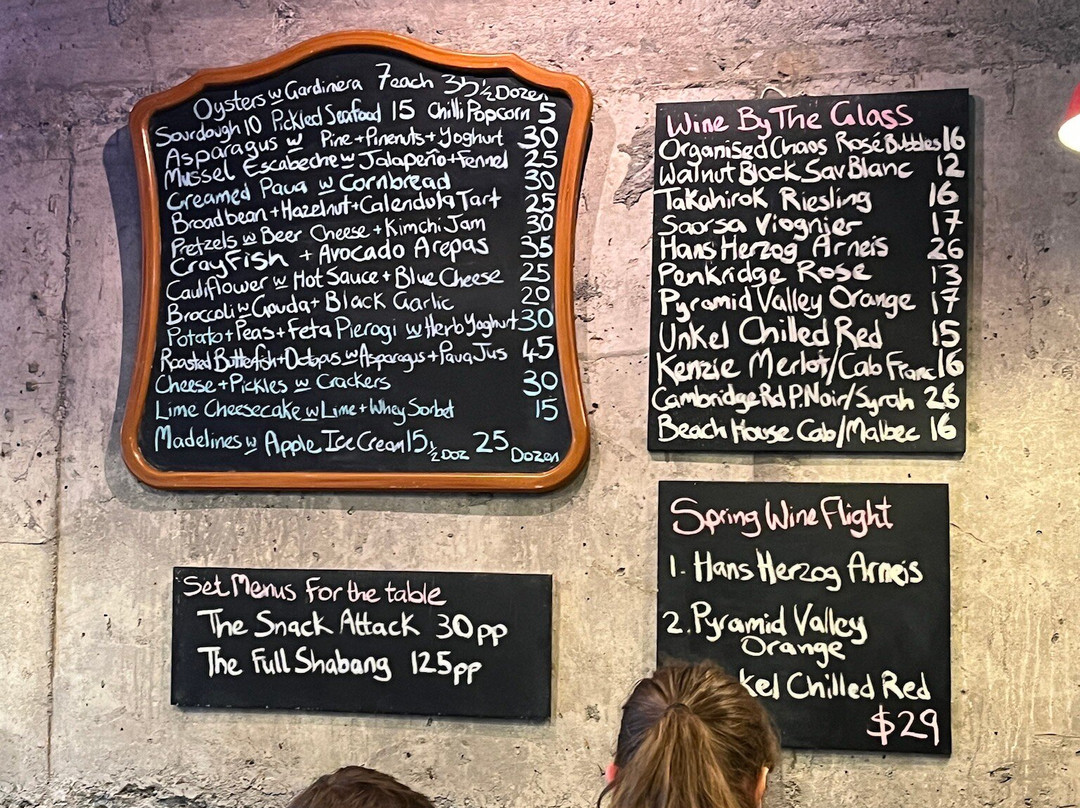 Oysters w Gardinera 7each 35 ½ Dozen
Sourdough 10 Pickled Seafood 15 Chilli Popcorn 5
Asparagus w Pine+Pinenuts+Yoghurt 30
Mussel Escabeche w Jalapeño+Fennel 25
Creamed Paua w Cornbread 30
Broadbean+Hazelnut+Calendula Tart 25
Pretzels w Beer Cheese+Kimchi Jam 30
CrayFish + Avocado Arepas 35
Cauliflower w Hot Sauce+Blue Cheese 25
Broccoli w Gouda+ Black Garlic 20
Potato+Peas+Feta Pierogi w Herb Yoghurt 30
Roasted Butterfish+Octopus w Asparagus+Paua Jus 45
Cheese+Pickles w Crackers 30
Lime Cheesecake w Lime+Whey Sorbet 15
Madelines w Apple Ice Cream 15 ½ Doz 25 Dozen
Set Menus For the table
The Snack Attack 30pp
The Full Shabang 125pp
Wine By The Glass
Organised Chaos Rosé Bubbles 16
Walnut Block Sav Blanc 12
Takahirok Riesling 16
Saorsa Viognier 17
Hans Herzog Arneis 26
Penkridge Rose 13
Pyramid Valley Orange 17
Unkel Chilled Red 15
Kenzie Merlot/Cab Franc 16
Cambridge Rd P.Noir/Syrah 26
Beach House Cab/Malbec 16
Spring Wine Flight
1. Hans Herzog Arneis
2. Pyramid Valley
Orange
kel Chilled Red
$29